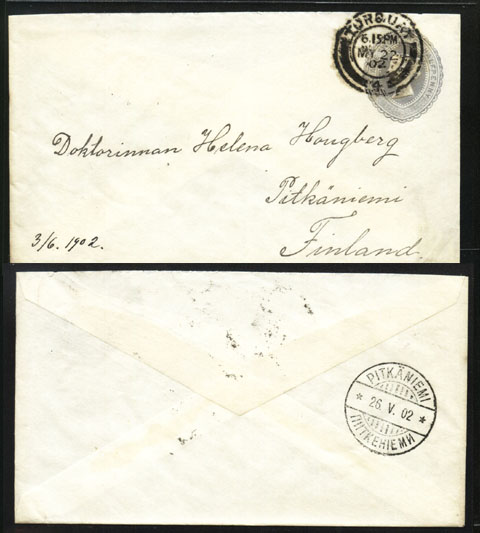 TORQUAY
6.15PM
MY 22
02
4
PENNY
Doktorinnan Helena Hougberg
Pitkäniemi
Finland
3/6. 1902.
PITKÄNIEMI
* 26. V. 02 *
ПИТКЕНІЕМИ